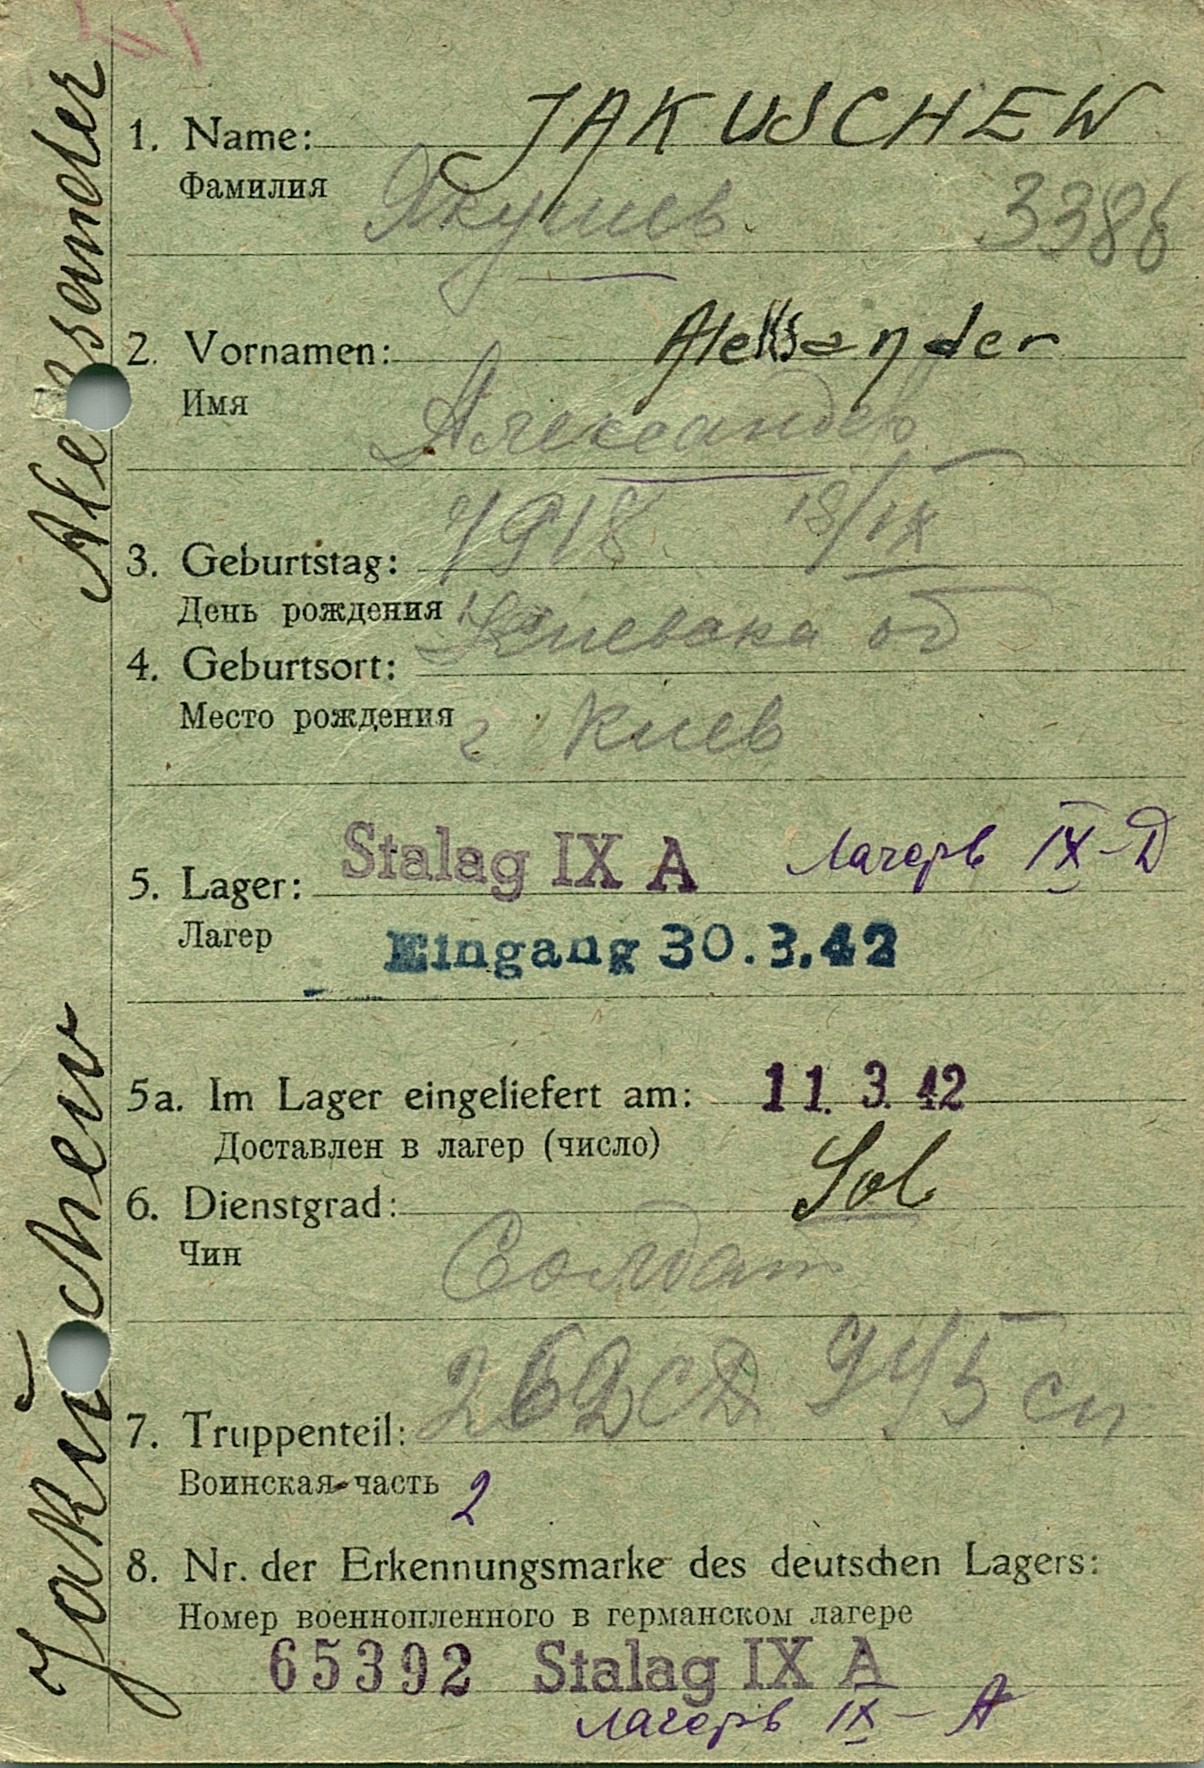 Jakuschew Aleksander
1. Name: JAKUSCHEW
Фамилия Якушев 3386
2. Vornamen: Aleksander
Имя Александр
1918 18/IX
3. Geburtstag:
День рождения Киевска об
4. Geburtsort:
Место рождения г Киев
5. Lager: Stalag IX A лагерь IX-Д
Лагер Eingang 30.3.42
5a. Im Lager eingeliefert am: 11. 3. 42
Доставлен в лагер (число)
6. Dienstgrad: Sol
Чин Солдат
7. Truppenteil: 262 СД 945 сп
Воинская часть 2
8. Nr. der Erkennungsmarke des deutschen Lagers:
Номер военнопленного в германском лагере
65392 Stalag IX A
лагерь IX-А